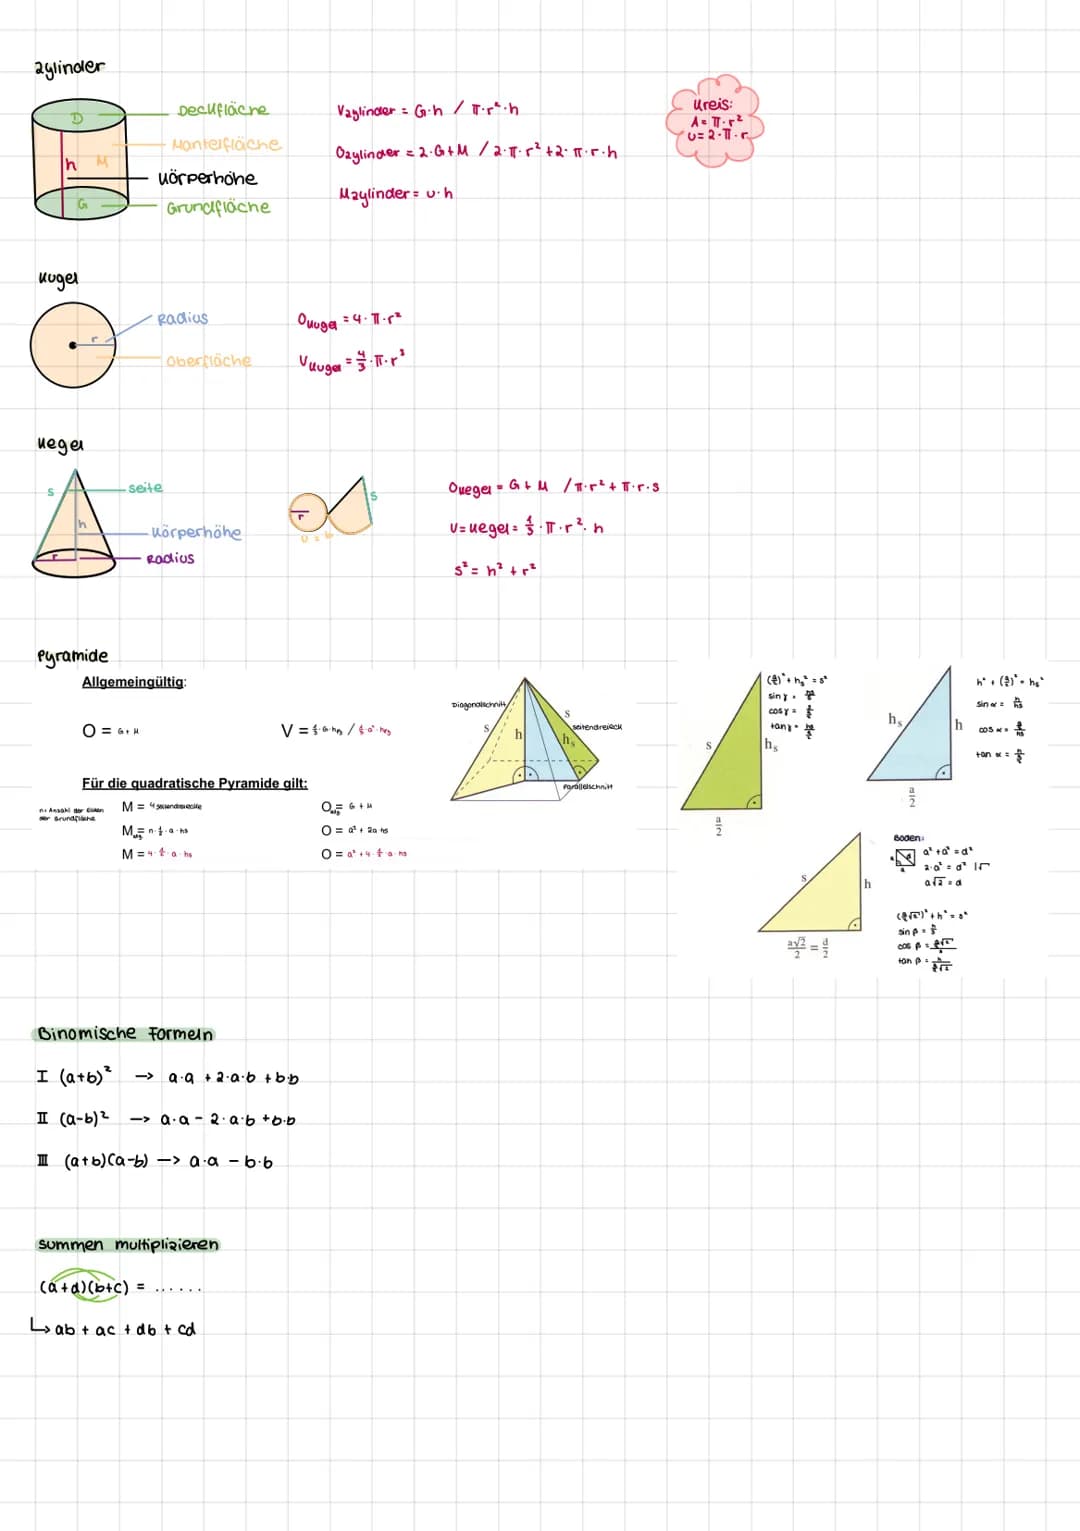 Zylinder
D
h
M
G
Deckfläche
Mantelfläche
Körperhöhe
Grundfläche
Vzylinder = G·h / π·r²·h
Ozylinder = 2·G+M / 2·π·r² + 2·π·r·h
Mzylinder = u·h
Kreis:
A = π·r²
U = 2·π·r
Kugel
r
Radius
Oberfläche
OKugel = 4·π·r²
VKugel = 4/3·π·r³
Kegel
s
h
r
Seite
Körperhöhe
Radius
r
s
U = b
OKegel = G + M / π·r² + π·r·s
V=Kegel = 1/3·π·r²·h
s² = h² + r²
Pyramide
Allgemeingültig:
O = G + M
Für die quadratische Pyramide gilt:
n: Anzahl der Ecken
der Grundfläche
M = 4 Seitendreiecke
M = n·1/2·a·hs
M = 4·1/2·a·hs
O = G + M
O = a² + 2a hs
O = a² + 4·1/2·a·hs
Diagonalschnitt
s
h
s
hs
Seitendreieck
Parallelschnitt
s
hs
a/2
(a/2)² + hs² = s²
sin γ =
cos γ =
tan γ =
hs
h
a/2
h² + (a/2)² = hs²
sin α = h/hs
cos α =
tan α =
s
h
a√2/2 = d/2
Boden:
a² + a² = d²
2·a² = d² |√
a√2 = d
(a/2√2)² + h² = s²
sin β = h/s
cos β =
tan β =
Binomische Formeln
I (a+b)² -> a·a + 2·a·b + b·b
II (a-b)² -> a·a - 2·a·b + b·b
III (a+b)(a-b) -> a·a - b·b
Summen multiplizieren
(a+d)(b+c) = ......
↳ ab + ac + db + cd